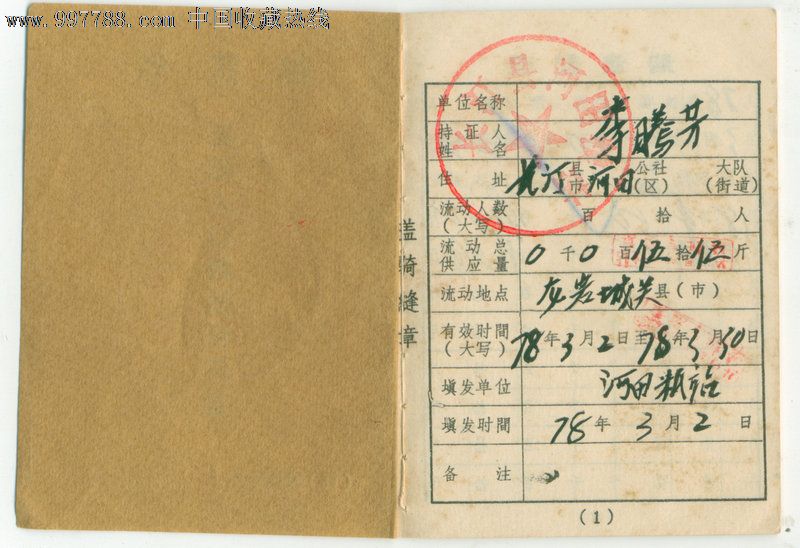 www.997788.com 中国收藏热线
盖骑缝章
单位名称
持证人姓名 李腾芳
住址 长汀县市 河田 公社(区) 大队(街道)
流动人数(大写) 百 拾 人
流动总供应量 0 千 0 百 伍 拾 伍 斤
流动地点 龙岩城关 县(市)
有效时間(大写) 78 年 3 月 2 日至 78 年 3 月 30 日
填发单位 河田粮站
填发时間 78 年 3 月 2 日
备注
(1)